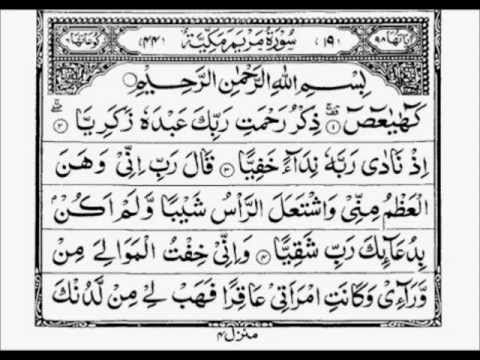 اٰيَاتُهَا ٩٨ (١٩) سُوْرَةُ مَرْيَمَ مَكِّيَّةٌ (٤٤) رُكُوْعَاتُهَا ٦
بِسْمِ اللهِ الرَّحْمٰنِ الرَّحِيْمِ
كٓهٰيٰعٓصٓ ۝١ ذِكْرُ رَحْمَتِ رَبِّكَ عَبْدَهٗ زَكَرِيَّا ۝٢
اِذْ نَادٰى رَبَّهٗ نِدَآءً خَفِيًّا ۝٣ قَالَ رَبِّ اِنِّيْ وَهَنَ
الْعَظْمُ مِنِّيْ وَاشْتَعَلَ الرَّاْسُ شَيْبًا وَّلَمْ اَكُنْۢ
بِدُعَآئِكَ رَبِّ شَقِيًّا ۝٤ وَاِنِّيْ خِفْتُ الْمَوَالِيَ مِنْ
وَّرَآءِيْ وَكَانَتِ امْرَاَتِيْ عَاقِرًا فَهَبْ لِيْ مِنْ لَّدُنْكَ
منزل ٤